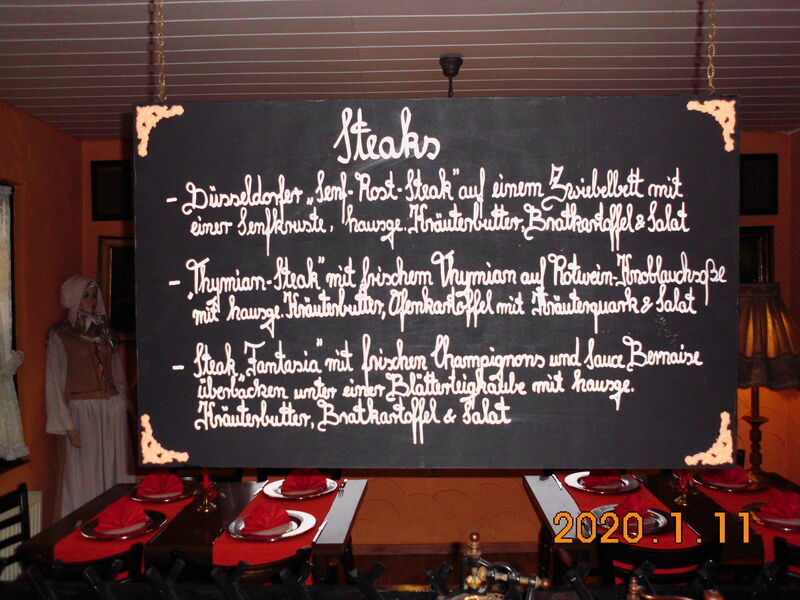 Steaks
- Düsseldorfer „Senf-Rost-Steak" auf einem Zwiebelbett mit
einer Senfkruste, hausge. Kräuterbutter, Bratkartoffel & Salat
- „Thymian-Steak" mit frischem Thymian auf Rotwein-Knoblauchsoße
mit hausge. Kräuterbutter, Ofenkartoffel mit Kräuterquark & Salat
- Steak „Fantasia" mit frischen Champignons und Sauce Bernaise
überbacken unter einer Blätterteighaube mit hausge.
Kräuterbutter, Bratkartoffel & Salat
2020.1.11